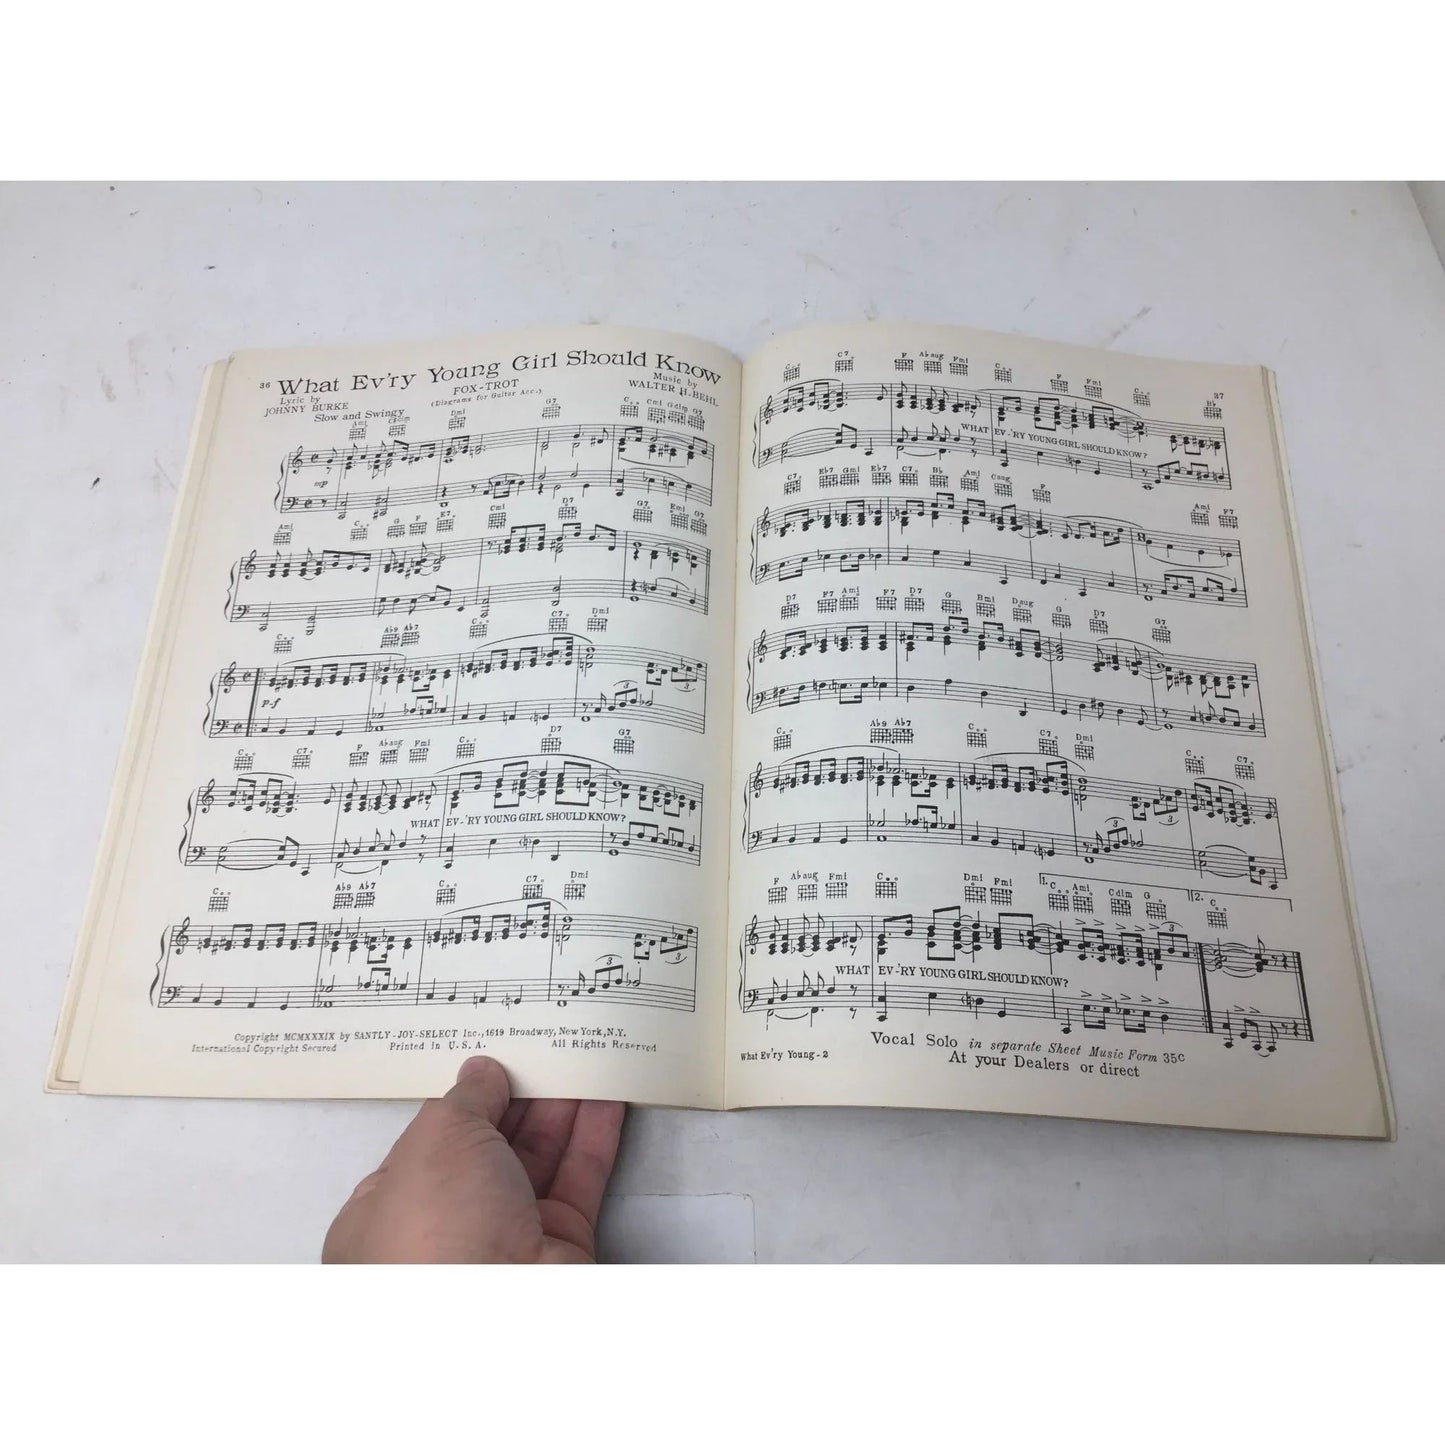 36 What Ev'ry Young Girl Should Know
Lyric by
JOHNNY BURKE
FOX-TROT
(Diagrams for Guitar Acc.)
Music by
WALTER H. BEHL
Slow and Swingy
Ami C♯dim Dmi G7 C Cmi Gdim G7
mp
Ami C G F E7 Cmi D7 G7 Emi G7
C Ab9 Ab7 C C7 Dmi
p-f
3 3
C C7 F Abaug Fmi C D7 G7
WHAT EV-'RY YOUNG GIRL SHOULD KNOW?
C Ab9 Ab7 C C7 Dmi
3 3
Copyright MCMXXXIX by SANTLY-JOY-SELECT Inc., 1619 Broadway, New York, N.Y.
International Copyright Secured Printed in U.S.A. All Rights Reserved
37
C C7 F Abaug Fmi C F Fmi C Bb
WHAT EV-'RY YOUNG GIRL SHOULD KNOW?
C7 Eb7 Gmi Eb7 C7 Bb Ami Caug F Ami F7
D7 F7 Ami F7 D7 G Bmi Daug G D7 G7
C Ab9 Ab7 C C7 Dmi C C7
3 3
F Abaug Fmi C Dmi Fmi 1. C Ami Cdim G 2. C
3
WHAT EV-'RY YOUNG GIRL SHOULD KNOW?
What Ev'ry Young - 2
Vocal Solo in separate Sheet Music Form 35c
At your Dealers or direct